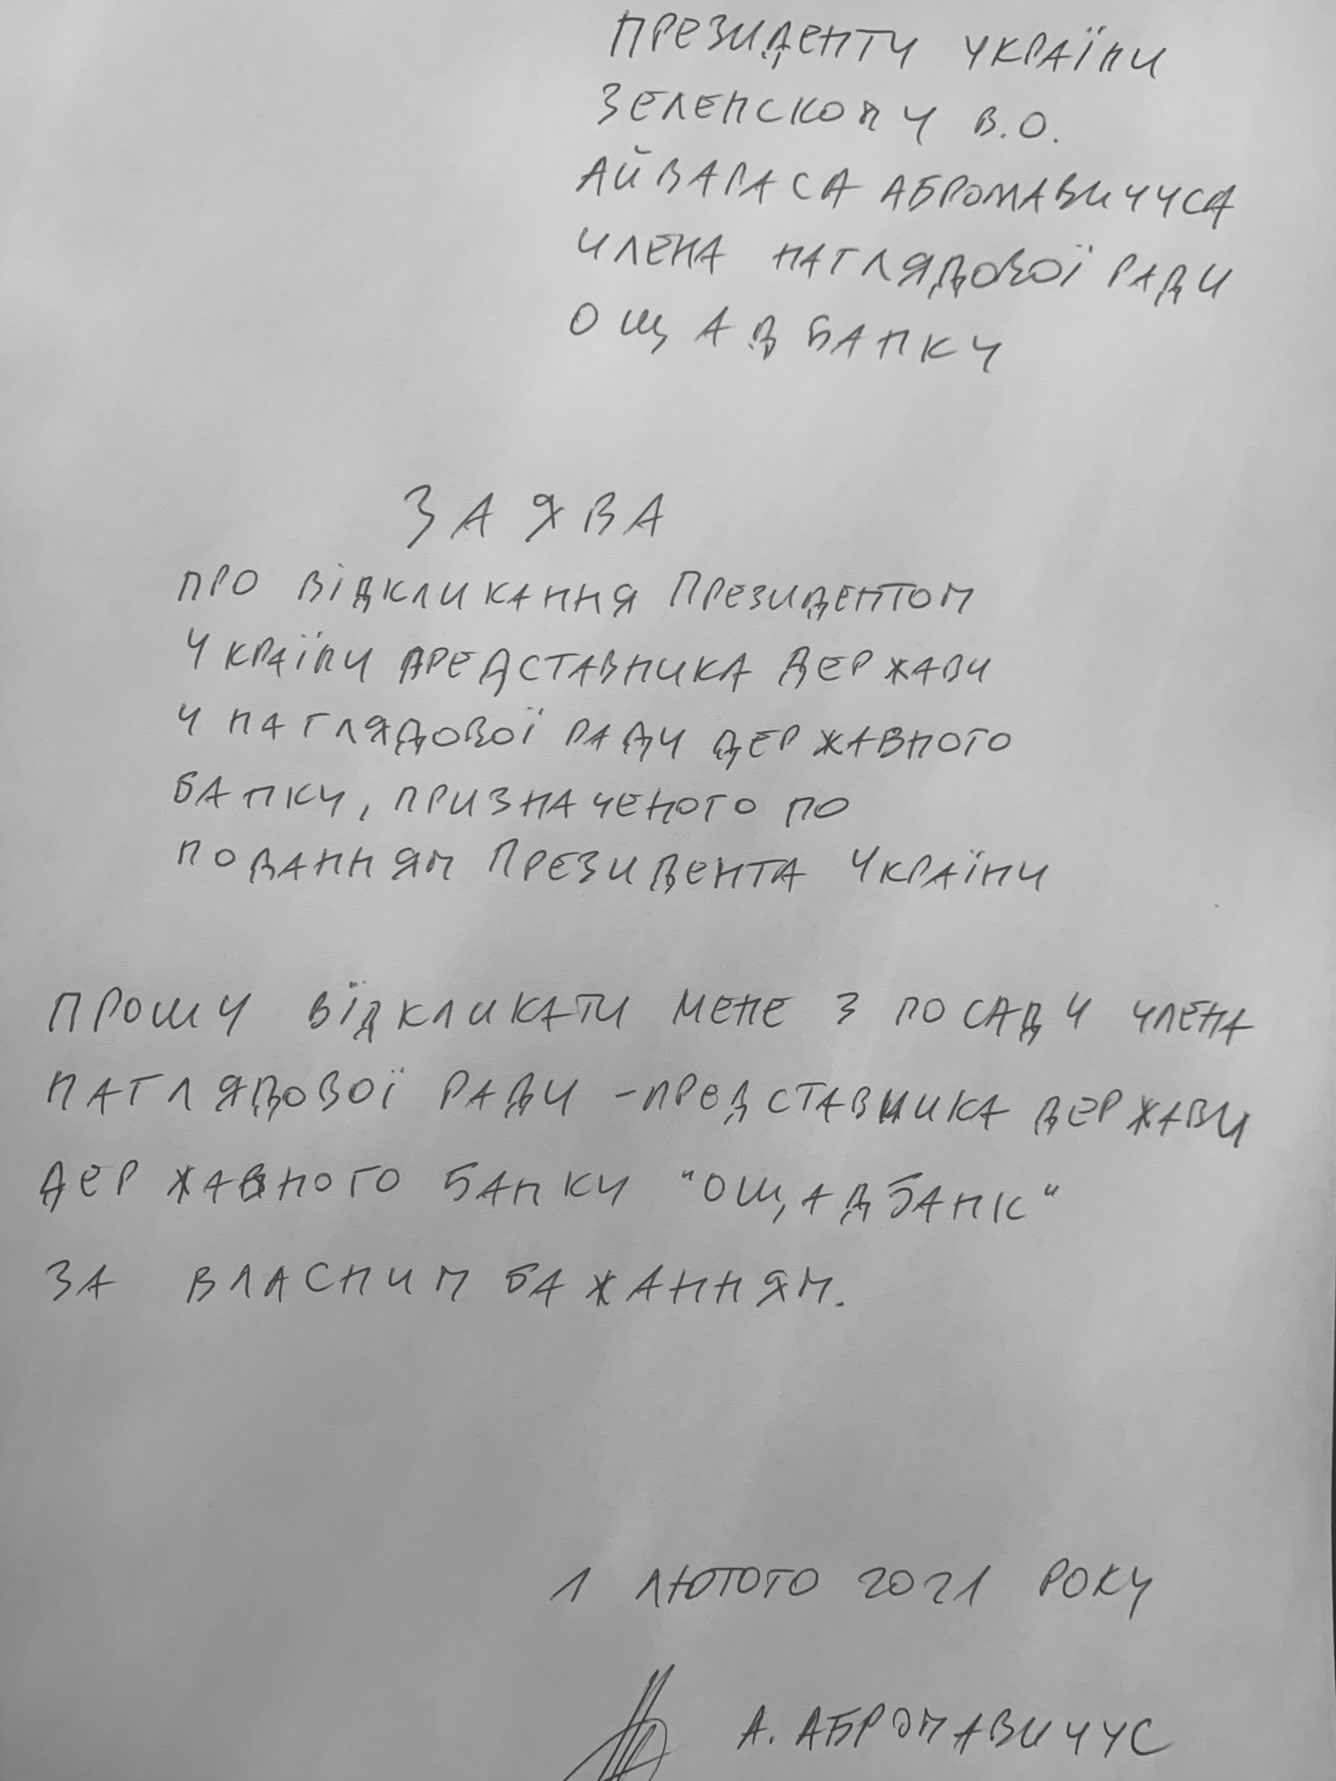 ПРЕЗИДЕНТУ УКРАЇНИ
ЗЕЛЕНСКОМУ В.О.
АЙВАРАСА АБРОМАВИЧУСА
ЧЛЕНА НАГЛЯДОВОЇ РАДИ
ОЩАДБАНКУ
ЗАЯВА
ПРО ВІДКЛИКАННЯ ПРЕЗИДЕНТОМ
УКРАЇНИ ПРЕДСТАВНИКА ДЕРЖАВИ
У НАГЛЯДОВОЇ РАДИ ДЕРЖАВНОГО
БАНКУ, ПРИЗНАЧЕНОГО ПО
ПОДАННЯМ ПРЕЗИДЕНТА УКРАЇНИ
ПРОШУ ВЇДКЛИКАТИ МЕНЕ З ПОСАДИ ЧЛЕНА
НАГЛЯДОВОЇ РАДИ - ПРЕДСТАВНИКА ДЕРЖАВИ
ДЕРЖАВНОГО БАНКУ "ОЩАДБАНК"
ЗА ВЛАСНИМ БАЖАННЯМ.
1 ЛЮТОГО 2021 РОКУ
А. АБРОМАВИЧУС